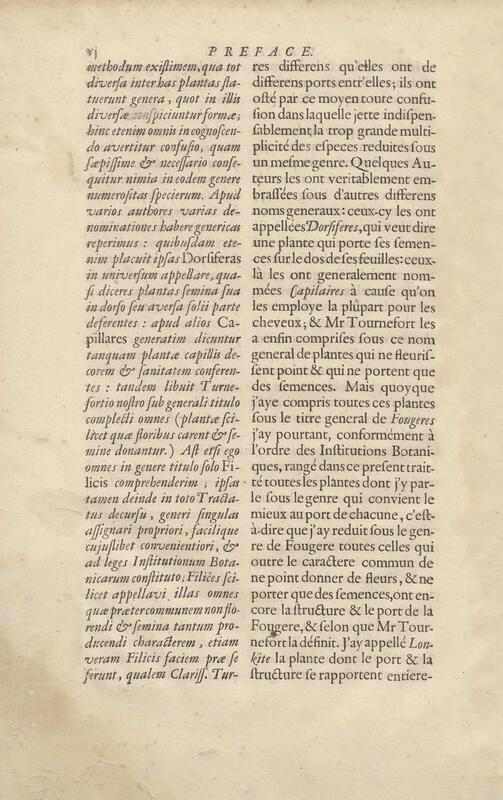 vj PREFACE.
methodum existimem, qua tot
diversa inter has plantas sta-
tuerunt genera, quot in illis
diversæ conspiciuntur formæ;
hinc etenim omnis in cognoscen-
do avertitur confusio, quam
sæpissime & necessario conse-
quitur nimia in eodem genere
numerositas specierum. Apud
varios authores varias de-
nominationes habere genericas
reperimus : quibusdam ete-
nim placuit ipsas Dorsiferas
in universum appellare, qua-
si diceres plantas semina sua
in dorso seu aversa folii parte
deferentes : apud alios Ca-
pillares generatim dicuntur
tanquam plantæ capillis de-
corem & sanitatem conferen-
tes : tandem libuit Turne-
fortio nostro sub generali titulo
complecti omnes (plantæ sci-
licet quæ floribus carent & se-
mine donantur.) Ast etsi ego
omnes in genere titulo solo Fi-
licis comprehenderim ; ipsas
tamen deinde in toto Tracta-
tus decursu, generi singulas
assignari propriori, facilique
cujuslibet convenientiori, &
ad leges Institutionum Bota-
nicarum constituto; Filices sci-
licet appellavi illas omnes
quæ præter communem non flo-
rendi & semina tantum pro-
ducendi characterem, etiam
veram Filicis faciem præ se
ferunt, qualem Clariss. Tur-
res differens qu'elles ont de
differens ports entr'elles; ils ont
osté par ce moyen toute confu-
sion dans laquelle jette indispen-
sablement la trop grande multi-
plicité des especes reduites sous
un mesme genre. Quelques Au-
teurs les ont veritablement em-
brassées sous d'autres differens
noms generaux : ceux-cy les ont
appellées Dorsiferes, qui veut dire
une plante qui porte ses semen-
ces sur le dos de ses feuilles: ceux-
là les ont generalement nom-
mées Capilaires à cause qu'on
les employe la plûpart pour les
cheveux; & Mr Tournefort les
a enfin comprises sous ce nom
general de plantes qui ne fleuris-
sent point & qui ne portent que
des semences. Mais quoyque
j'aye compris toutes ces plantes
sous le titre general de Fougeres
j'ay pourtant, conformément à
l'ordre des Institutions Botani-
ques, rangé dans ce present trait-
té toutes les plantes dont j'y par-
le sous le genre qui convient le
mieux au port de chacune, c'est-
à-dire que j'ay reduit sous le gen-
re de Fougere toutes celles qui
outre le caractere commun de
ne point donner de fleurs, & ne
porter que des semences, ont en-
core la structure & le port de la
Fougere, & selon que Mr Tour-
nefort la définit. J'ay appellé Lon-
kite la plante dont le port & la
structure se rapportent entiere-